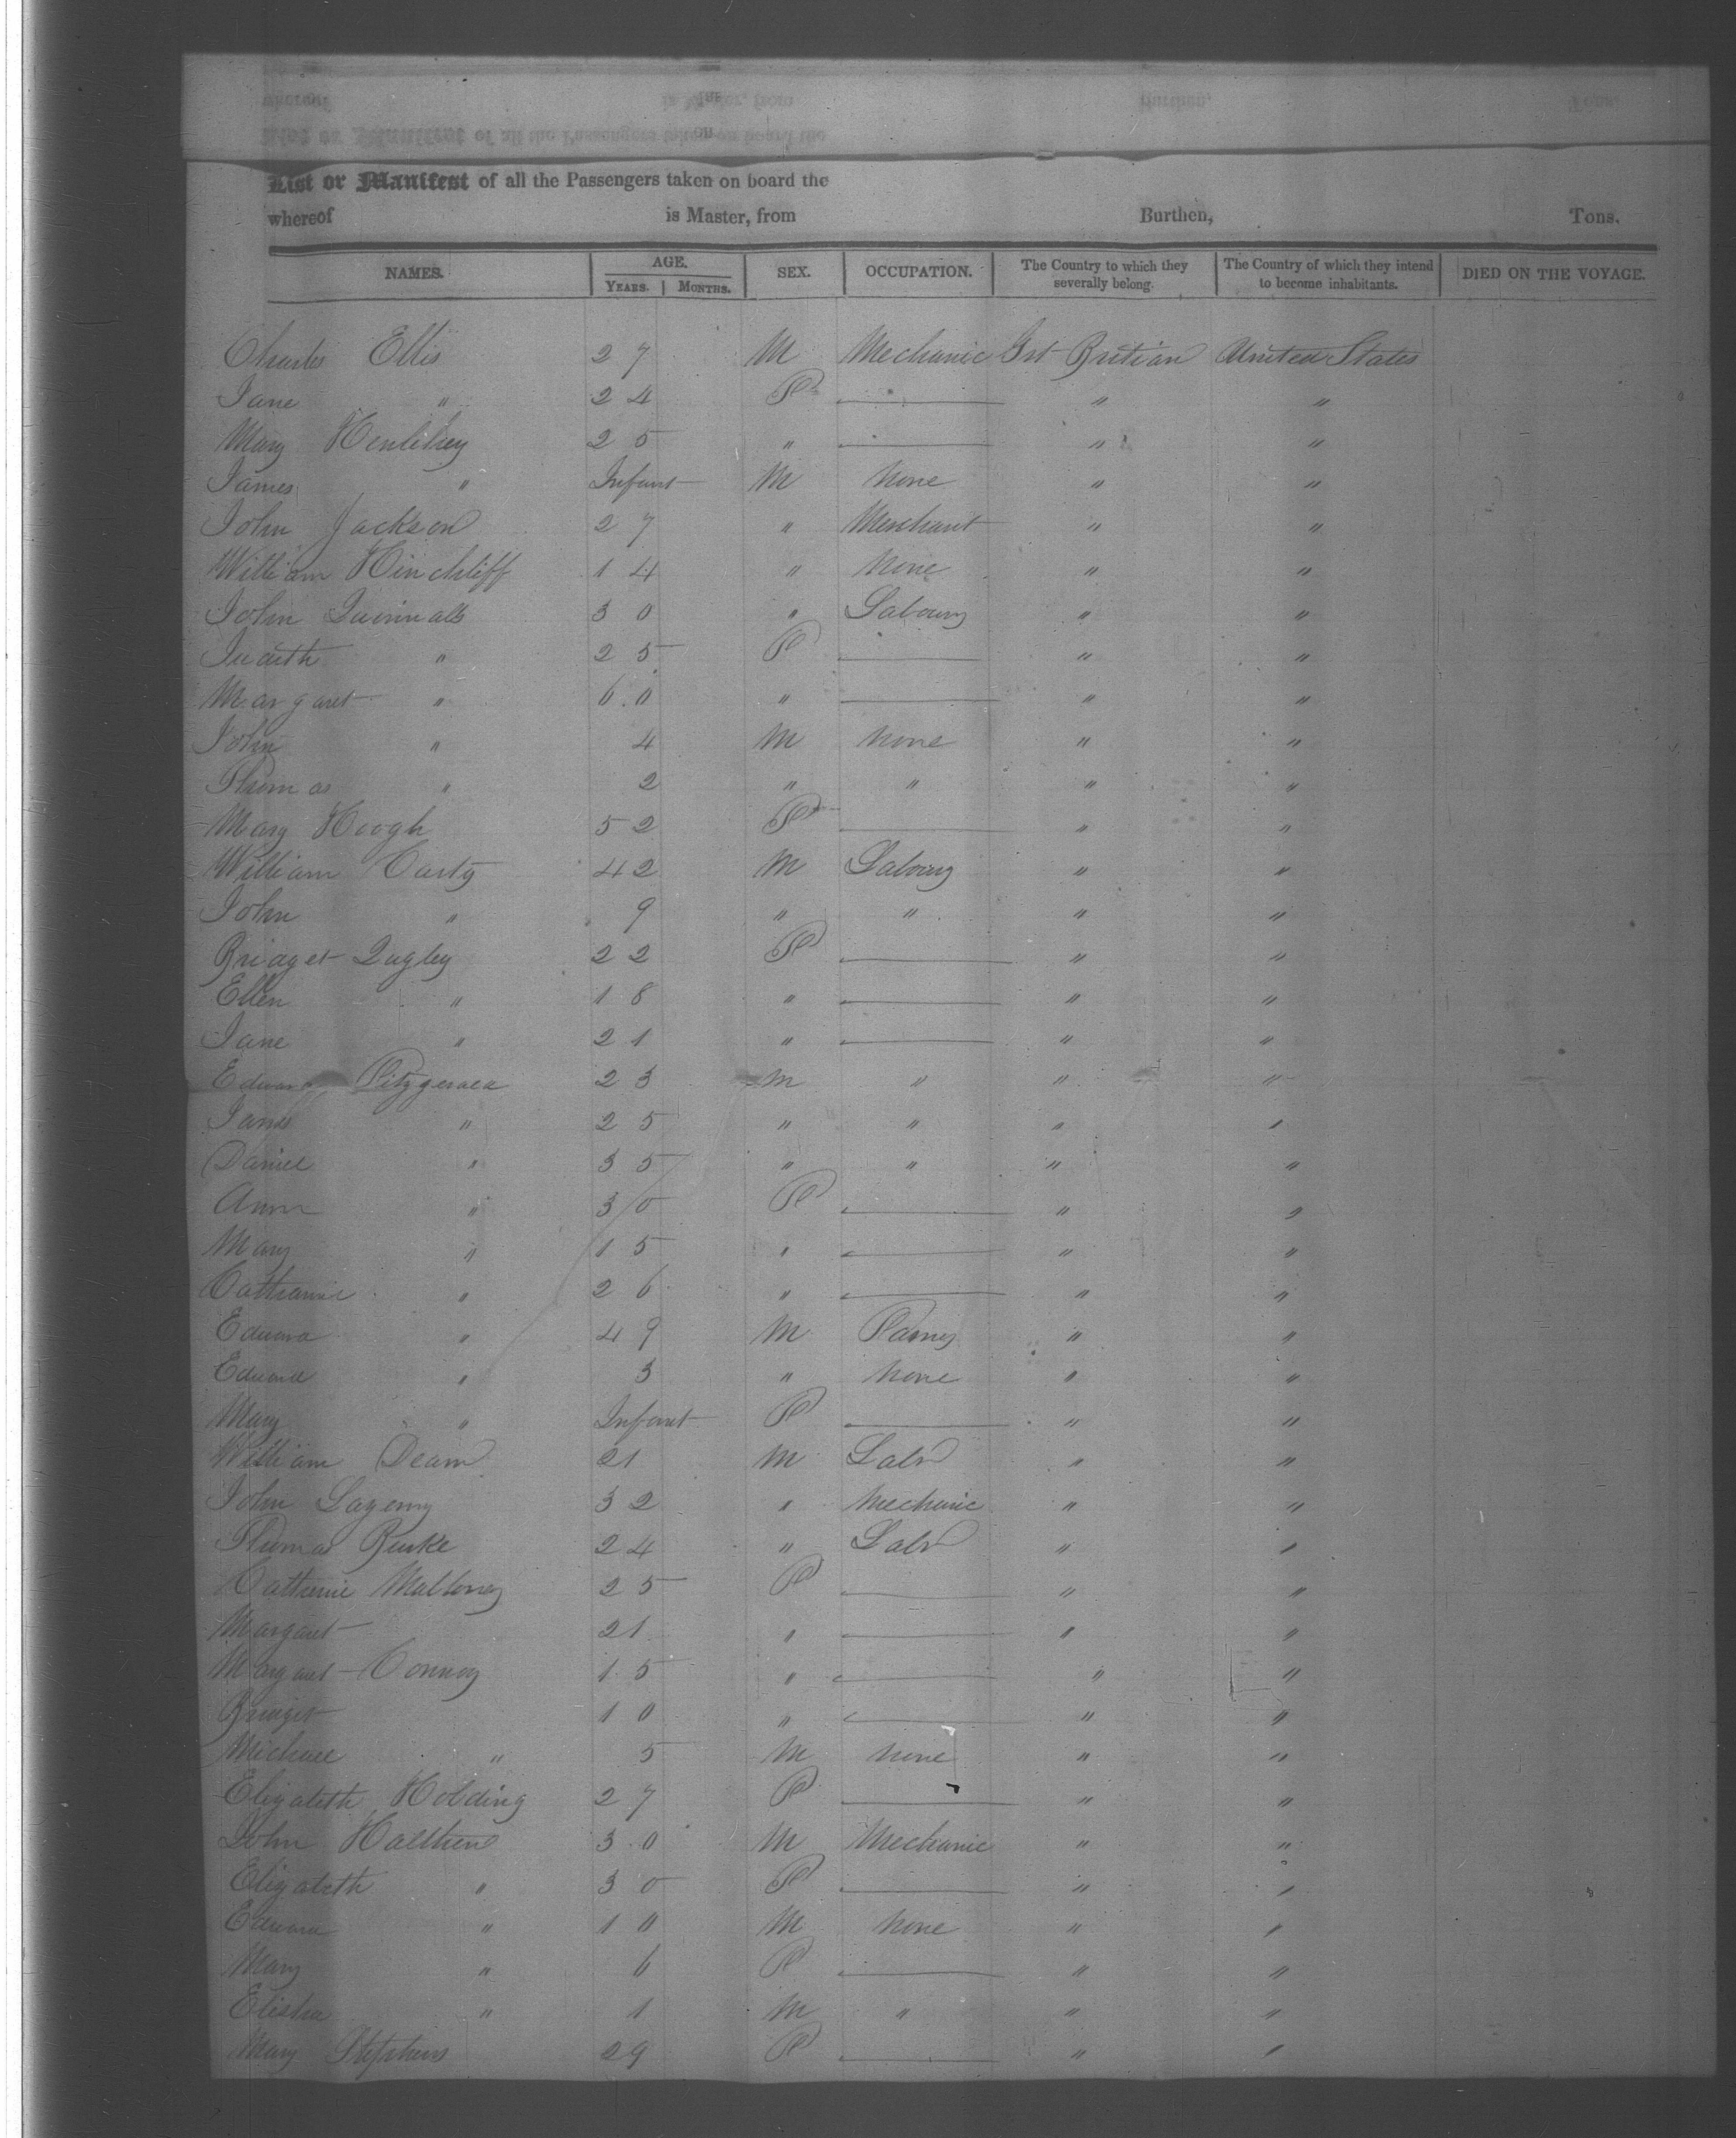 List or Manifest of all the Passengers taken on board the
whereof is Master, from Burthen, Tons.
NAMES. AGE. SEX. OCCUPATION. The Country to which they severally belong. The Country of which they intend to become inhabitants. DIED ON THE VOYAGE.
YEARS. MONTHS.
Charles Ellis 27 M Mechanic Grt Britian United States
Jane " 24 F — " "
Mary 25 " — " "
James " Infant M None " "
John Jackson 27 " Merchant " "
William Hinchliff 14 " None " "
John 30 " Labourg " "
Judith " 25 F — " "
Margaret " 60 " — " "
John " 4 M None " "
Thomas " 2 " " " "
Mary Hoogh 52 F — " "
William Carty 42 M Labourg " "
John " 9 " " " "
Bridget Qugley 22 F — " "
Ellen " 18 " — " "
Jane " 21 " — " "
Edward Fitzgerald 23 M " " "
James " 25 " " " "
Daniel " 35 " " " "
Ann " 30 F — " "
Mary " 15 " — " "
Catharine " 26 " — " "
Edward " 49 M " "
Edward " 3 " None " "
Mary " Infant F — " "
William Dean 21 M Labr " "
John 32 " Mechanic " "
Thomas Burke 24 " Labr " "
Catherine Malloney 25 F — " "
Margaret 21 " — " "
Margaret Connoy 15 " — " "
Bridget 10 " — " "
Michael " 5 M None " "
Elizabeth Holding 27 F — " "
John 30 M Mechanic " "
Elizabeth " 30 F — " "
Edward " 10 M None " "
Mary " 6 F — " "
Elisha " 1 M " " "
Mary Stephens 29 F — " "